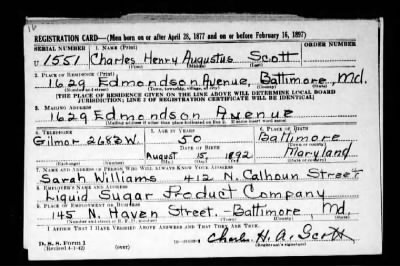 REGISTRATION CARD—(Men born on or after April 28, 1877 and on or before February 16, 1897)
SERIAL NUMBER 1. NAME (Print) ORDER NUMBER
U 1551 Charles Henry Augustus Scott
(First) (Middle) (Last)
2. PLACE OF RESIDENCE (Print)
1629 Edmondson Avenue, Baltimore, Md.
(Number and street) (Town, township, village, or city) (County) (State)
[THE PLACE OF RESIDENCE GIVEN ON THE LINE ABOVE WILL DETERMINE LOCAL BOARD
JURISDICTION; LINE 2 OF REGISTRATION CERTIFICATE WILL BE IDENTICAL]
3. MAILING ADDRESS
1629 Edmondson Avenue
[Mailing address if other than place indicated on line 2. If same insert word same]
4. TELEPHONE 5. AGE IN YEARS 6. PLACE OF BIRTH
Gilmor 2683W. 50 Baltimore
DATE OF BIRTH (Town or county)
August 15, 1892 Maryland
(Exchange) (Number) (Mo.) (Day) (Yr.) (State or country)
7. NAME AND ADDRESS OF PERSON WHO WILL ALWAYS KNOW YOUR ADDRESS
Sarah Williams 412 N. Calhoun Street
8. EMPLOYER'S NAME AND ADDRESS
Liquid Sugar Product Company
9. PLACE OF EMPLOYMENT OR BUSINESS
145 N. Haven Street. - Baltimore, Md.
(Number and street or R. F. D. number) (Town) (County) (State)
I AFFIRM THAT I HAVE VERIFIED ABOVE ANSWERS AND THAT THEY ARE TRUE.
D. S. S. Form 1
(Revised 4-1-42) (over) Charles H. A. Scott
(Registrant's signature)